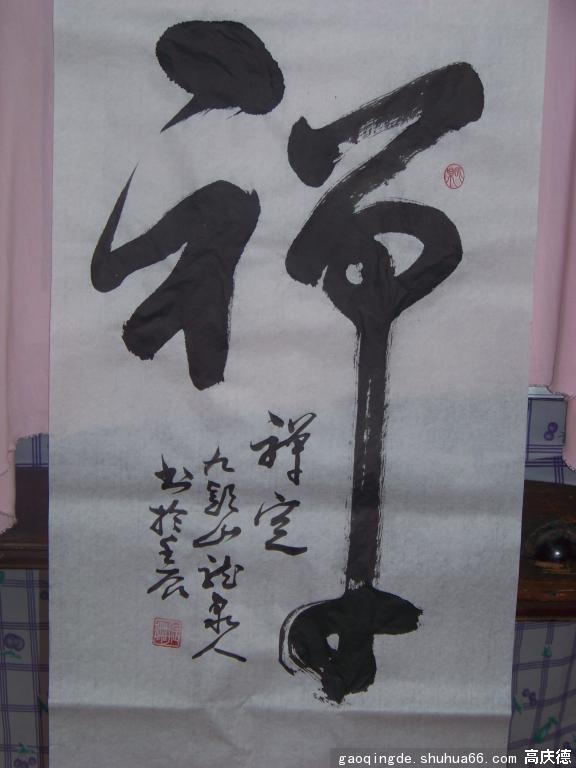 禅
禅定
九山龙泉人
书於壬辰
gaoqingde.shuhua66.com 高庆德